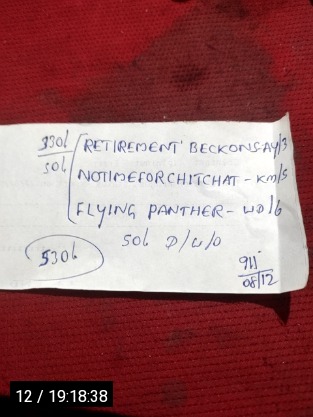 330/ RETIREMENT BECKONS-AY/3
50/ NOTIMEFORCHITCHAT - KM/5
FLYING PANTHER - WD/6
50/ D/U/O
530/
911
08/12
12 / 19:18:38